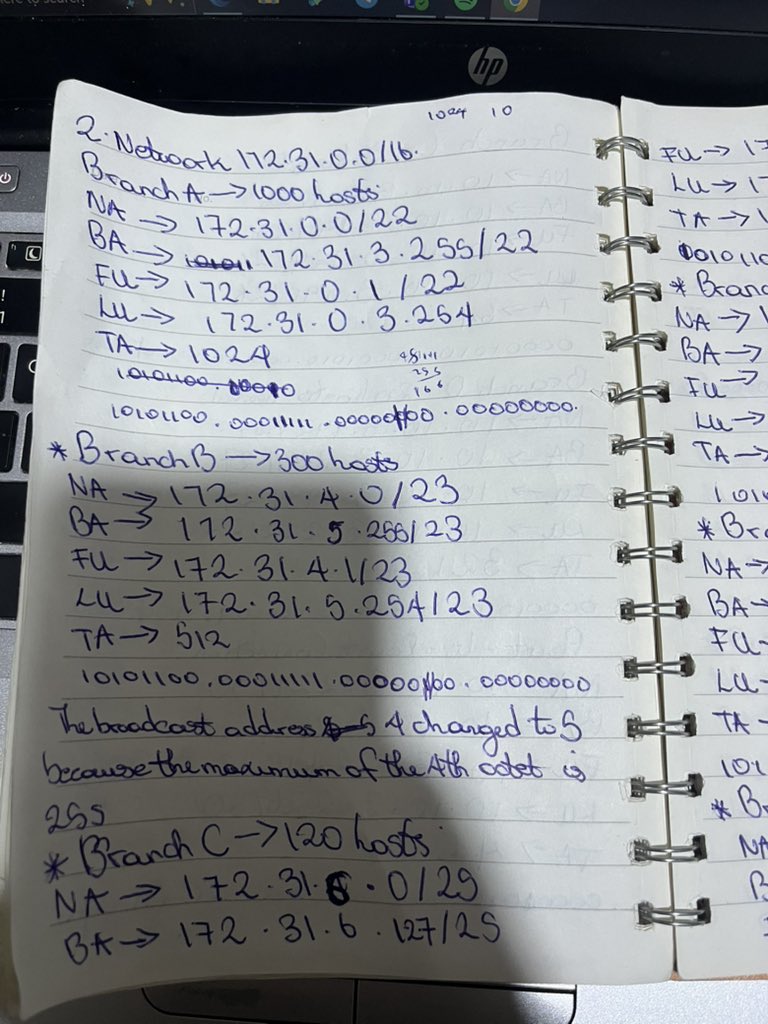 hp
1024 10
2. Network 172.31.0.0/16.
Branch A → 1000 hosts
NA → 172.31.0.0/22
BA → 172.31.3.255/22
FU → 172.31.0.1/22
LU → 172.31.0.3.254
TA → 1024
10101100.00011111.00000000.00000000.
* Branch B → 300 hosts
NA → 172.31.4.0/23
BA → 172.31.5.255/23
FU → 172.31.4.1/23
LU → 172.31.5.254/23
TA → 512
10101100.00011111.00000100.00000000
The broadcast address 4 changed to 5
because the maximum of the 4th octet is
255
* Branch C → 120 hosts
NA → 172.31.6.0/25
BA → 172.31.6.127/25
FU → 17
LU → 1
TA →
* Bran
NA →
BA →
FU →
LU →
TA →
1010
* Br
NA →
BA →
FU
LU →
TA →
101
* B
NA
B